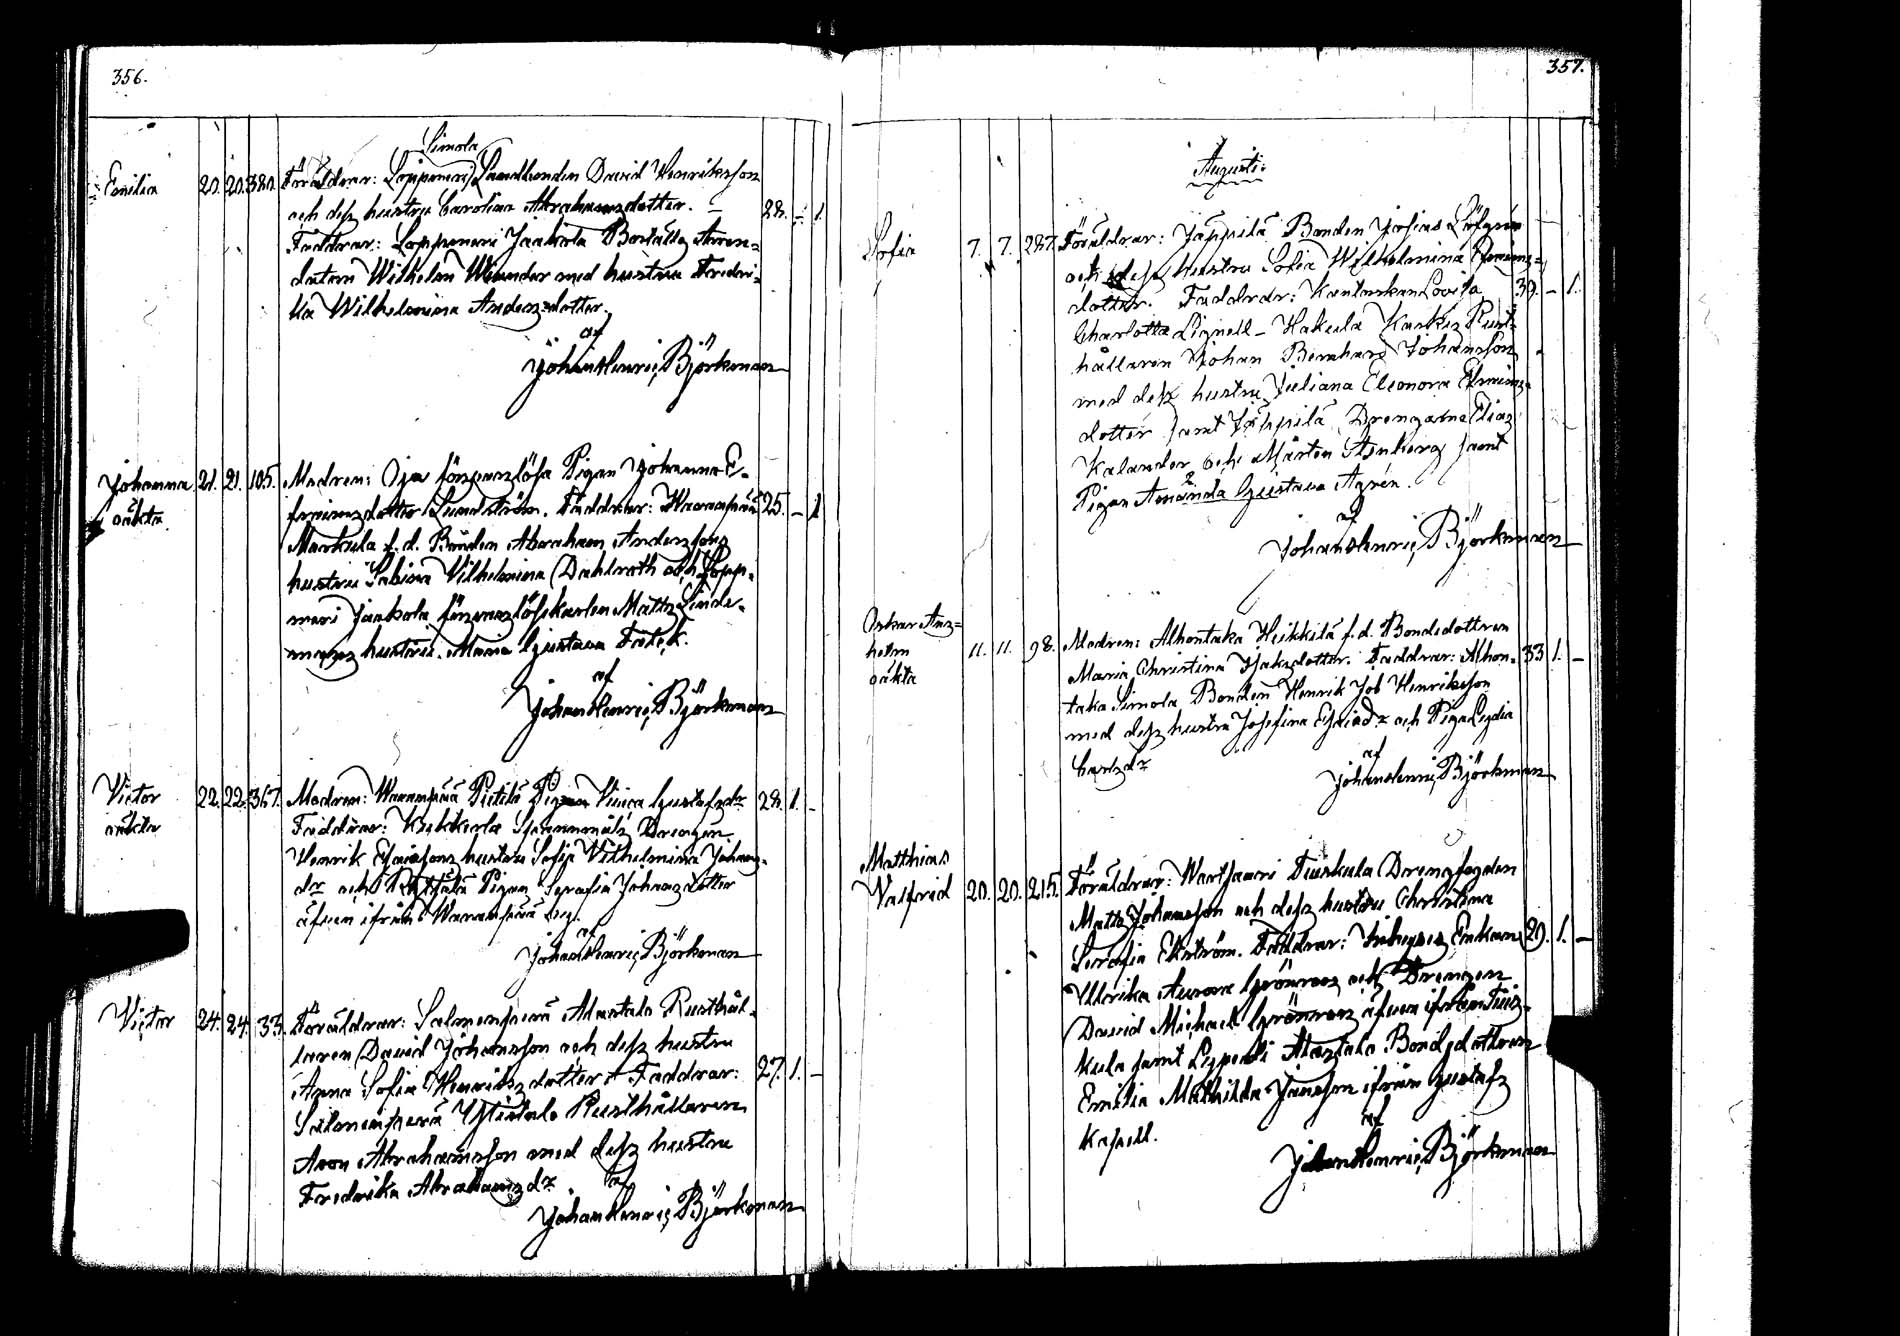 356.
Simola
Emilia 20. 20. 380. Föräldrar: Loppeneri Landbonden David Henriksson
och dess hustru Carolina Abrahamsdotter. — 28. – 1.
Faddrar: Loppeneri Jaakola Boställs Aren=
datorn Wilhelm Winander med hustru Fredri=
ka Wilhelmina Andersdotter.
af
Johan Henric Björkman
Johanna 21. 21. 105. Modren: Oja försvarslösa Pigan Johanna E=
oäkta fraimsdotter Lundström. Faddrar: Warampää 25. – 1
Markula f. d. Bonden Abraham Anderssons
hustru Sabina Vilhelmina Dahlroth och Lopp=
neri Jaakola försvarslöskarlen Matts Linde=
mans hustru Maria Gustava
af
Johan Henric Björkman
Victor 22. 22. 367. Modren: Warampää Pietilä Pigan Gustafsdr 28. 1. –
oäkta Faddrar: Drengen
Henrik Esaiassons hustru Sofia Vilhelmina Johans=
dr och Pigan Serafia Johansdotter
äfven ifrån Warampää by.
af
Johan Henric Björkman
Victor 24. 24. 33. Föräldrar: Salmenperä Alastalo Rusthål=
laren David Johansson och dess hustru
Anna Sofia Henriksdotter. Faddrar: 27. 1. –
Salmenperä Ylistalo Rusthållaren
Aron Abrahamsson med dess hustru
Fredrika Abrahamsdr.
af
Johan Henric Björkman
357.
Augusti.
Sofia 7. 7. 287. Föräldrar: Jäppilä Bonden Josias Löfgrén
och dess hustru Sofia Wilhelmina Efraims=
dotter. Faddrar: Kantorskan Lovisa 39. – 1.
Charlotta Lignell – Hakula Karkis Rust=
hållaren Johan Bernhard Johansson
med dess hustru Juliana Eleonora Efraims=
dotter samt Jäppilä Drengarne Elias
Kalander och Mårten Stenberg samt
Pigan Amanda Gustava Agrén.
af
Johan Henric Björkman
Oskar Ans=
helm 11. 11. 98. Modren: Alhontaka Heikkilä f. d. Bondedottren
oäkta Maria Christina Isaksdotter. Faddrar: Alhon= 33 1. –
taka Simola Bonden Henrik Job Henriksson
med dess hustru Josefina Esaiedr och Piga Lydia
Carlsdr
af
Johan Henric Björkman
Matthias
Valfrid 20. 20. 215. Föräldrar: Wartsaari Tuiskula Drengfogden
Matts Johansson och dess hustru Christina
Serafia Ekström. Faddrar: Inhyses Enkan 29. 1. –
Ullrika Aurora Grönroos och Drengen
David Michael Grönroos äfven ifrån Tuis=
kula samt Alastalo Bondedottren
Emilia Mathilda Jansson ifrån Gustafs
Kapell.
af
Johan Henric Björkman